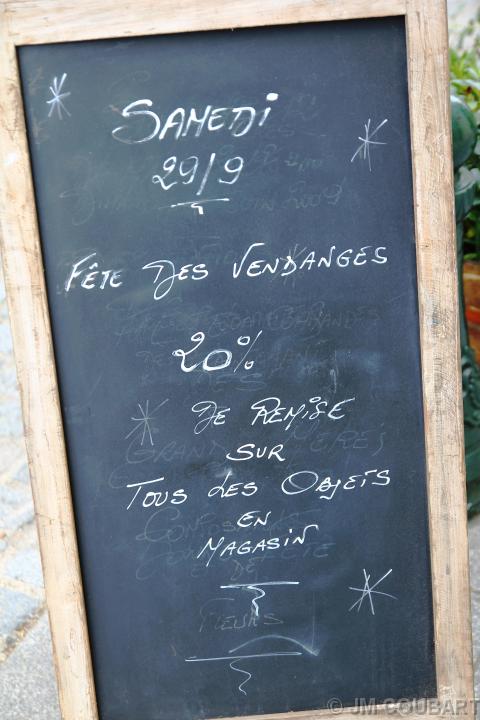 SAMEDI
29/9
FÊTE DES VENDANGES
20%
DE REMISE
SUR
TOUS LES OBJETS
EN
MAGASIN
FLEURS
© JM COUBART